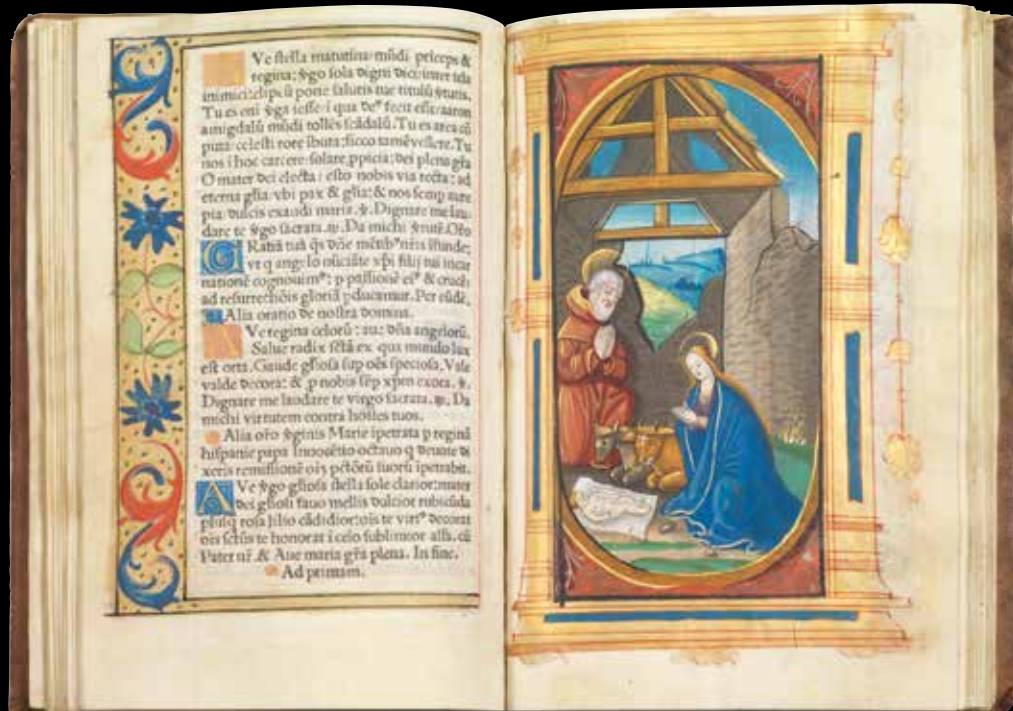 Ve stella matutina: mūdi prīceps &
regina: v̄go sola digni dici: inter tela
inimici: clipeū pone salutis tue titulū v̄tutis.
Tu es eni v̄ga iesse i qua deꝰ fecit esse: aaron
amigdalū mūdi tollēs scādalū. Tu es area cō
puta: celesti rore ībuta: sicco tamē vellere. Tu
nos i hoc carcere: solare, ppicia: dei plena grā
O mater dei electa: esto nobis via recta: ad
eterna glīa vbi pax & glīa: & nos semp aure
pia dulcis exaudi maria. ℣. Dignare me lau-
dare te v̄go sacrata. ℟. Da michi v̄tutē. Orō
GRatiā tuā qs dn̄e mētibꝰ nr̄is īfunde:
vt q angelo nūciāte xp̄i filij tui incar
nationē cognouimꝰ: p passionē eiꝰ & crucē:
ad resurrectiōis gloriā pducamur. Per eūdē.
Alia oratio de nostra domina.
Ve regina celorū: aue dn̄a angelorū.
Salue radix sctā ex qua mundo lux
est orta. Gaude gl̄iosa sup oēs speciosa. Vale
valde decora: & p nobis sēp xp̄m exora. ℣.
Dignare me laudare te virgo sacrata. ℟. Da
michi virtutem contra hostes tuos.
Alia orō v̄ginis Marie ipetrata p reginā
hispanie papa Innocētio octauo q deuote di
xeris remissionē oīʒ pctōrū tuorū ipetrabit.
AVe v̄go gl̄iosa stella sole clarior: mater
dei gl̄iosi fauo mellis dulcior rubicūda
plusq̄ rosa lilio cādidior: oīs te virtꝰ decorat
oīs sctūs te honorat i celo sublimior alfa. cū
Pater nr̄. & Aue maria gr̄a plena. In fine.
Ad primam.